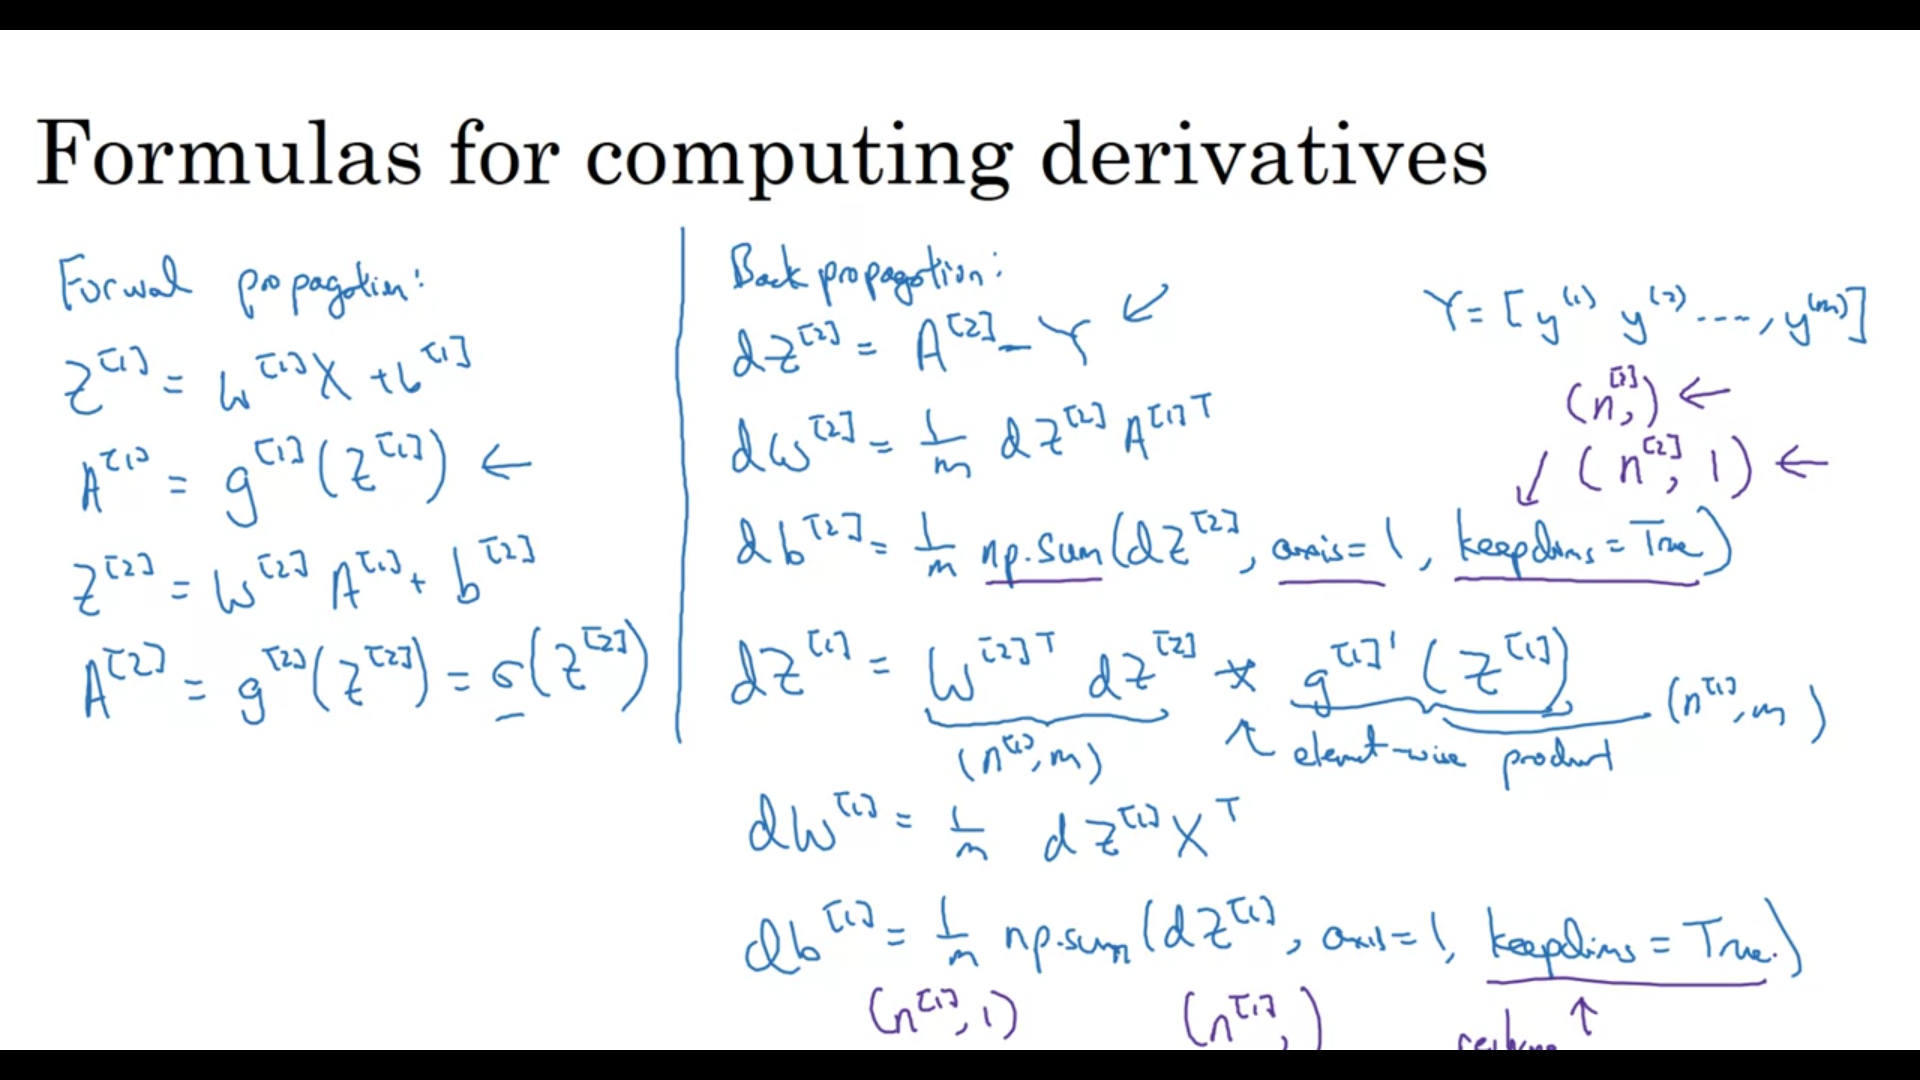 Formulas for computing derivatives
Forward propagation:
Z^[1] = W^[1] X + b^[1]
A^[1] = g^[1](Z^[1]) ←
Z^[2] = W^[2] A^[1] + b^[2]
A^[2] = g^[2](Z^[2]) = σ(Z^[2])
Back propagation:
dZ^[2] = A^[2] - Y ↙
dW^[2] = 1/m dZ^[2] A^[1]T
db^[2] = 1/m np.sum(dZ^[2], axis=1, keepdims=True)
dZ^[1] = W^[2]T dZ^[2] * g^[1]'(Z^[1])
(n^[1], m) ↖ element-wise product (n^[1], m)
dW^[1] = 1/m dZ^[1] X^T
db^[1] = 1/m np.sum(dZ^[1], axis=1, keepdims=True.)
(n^[1], 1) (n^[1],) ↑
Y = [y^(1) y^(2) ...., y^(m)]
(n^[2],) ←
↙ (n^[2], 1) ←